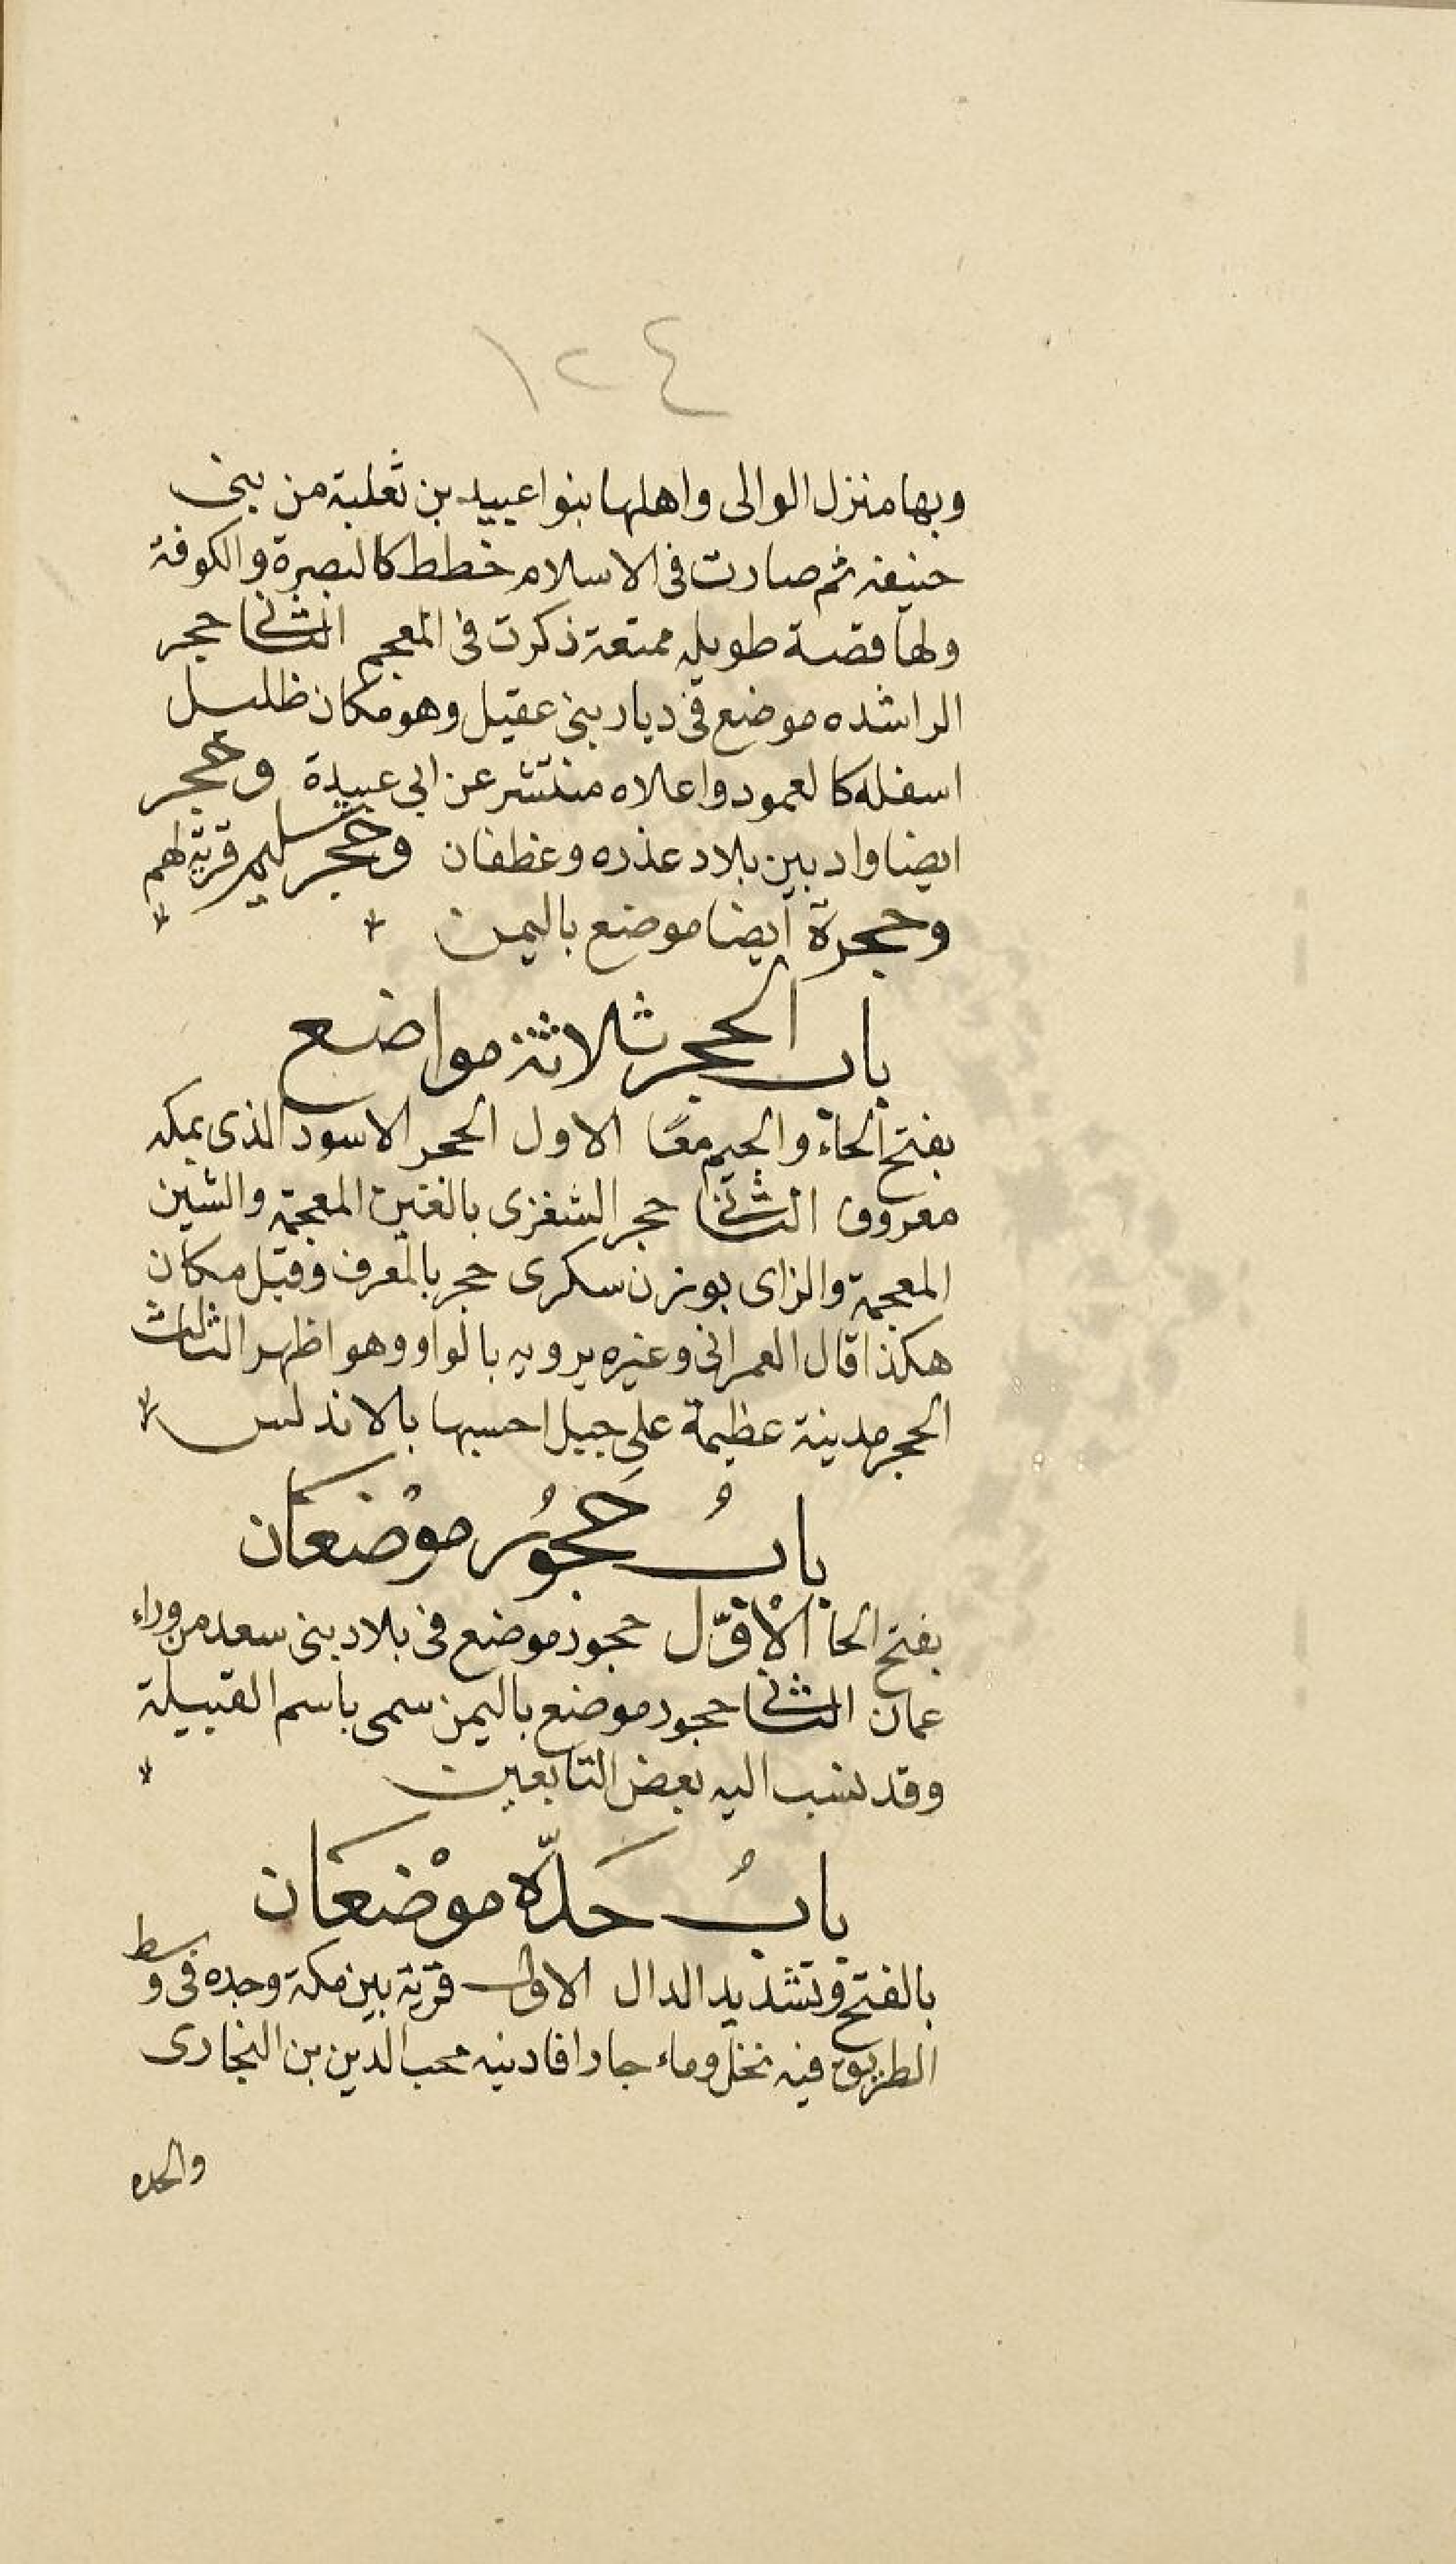 ١٢٤
وبها منزل الوالى واهلها بنوا عبيد بن ثعلبة من بنى
حنيفه ثم صارت فى الاسلام خطط كالبصرة والكوفة
ولها قصة طويله ممتعة ذكرت فى المعجم الثانى حجر
الراشده موضع فى ديار بنى عقيل وهو مكان ظليل
اسفله كالعمود واعلاه منتشر عن ابى عبيدة وحجر
ايضا واد بين بلاد عذره وغطفان وحجر سليم قرية لهم
وحجرة ايضا موضع باليمن
باب الحجر ثلاثة مواضع
بفتح الحاء والجيم معًا الاول الحجر الاسود الذى بمكه
معروف الثانى حجر الشغزى بالغين المعجمة والشين
المعجمة والزاى بوزن سكرى حجر بالمعرف وقيل مكان
هكذا قال العمرانى وغيره يرويه بالواو وهو اظهر الثالث
الحجر مدينة عظيمة على جبل احسبها بالاندلس
بابُ حَجوُر موْضعَان
بفتح الحا الاوّل حجور موضع فى بلاد بنى سعد من وراء
عمان الثانى حجور موضع باليمن سمى باسم القبيلة
وقد نسب اليه بعض التابعين
بابُ حَدّه موْضعَان
بالفتح وتشديد الدال الاول قرية بين مكة وجده فى وسط
الطريق فيه نخل وماء جار افادنيه محب الدين بن النجارى
والحده